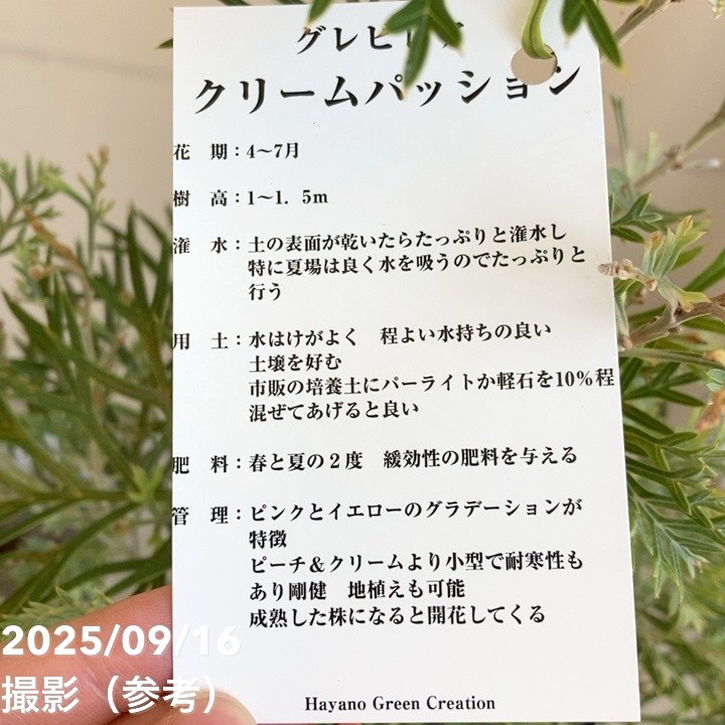 グレビレア
クリームパッション
花　期：4～7月
樹　高：1～1．5m
潅　水：土の表面が乾いたらたっぷりと潅水し
特に夏場は良く水を吸うのでたっぷりと
行う
用　土：水はけがよく　程よい水持ちの良い
土壌を好む
市販の培養土にパーライトか軽石を10％程
混ぜてあげると良い
肥　料：春と夏の２度　緩効性の肥料を与える
管　理：ピンクとイエローのグラデーションが
特徴
ピーチ＆クリームより小型で耐寒性も
あり剛健　地植えも可能
成熟した株になると開花してくる
Hayano Green Creation
2025/09/16
撮影（参考）